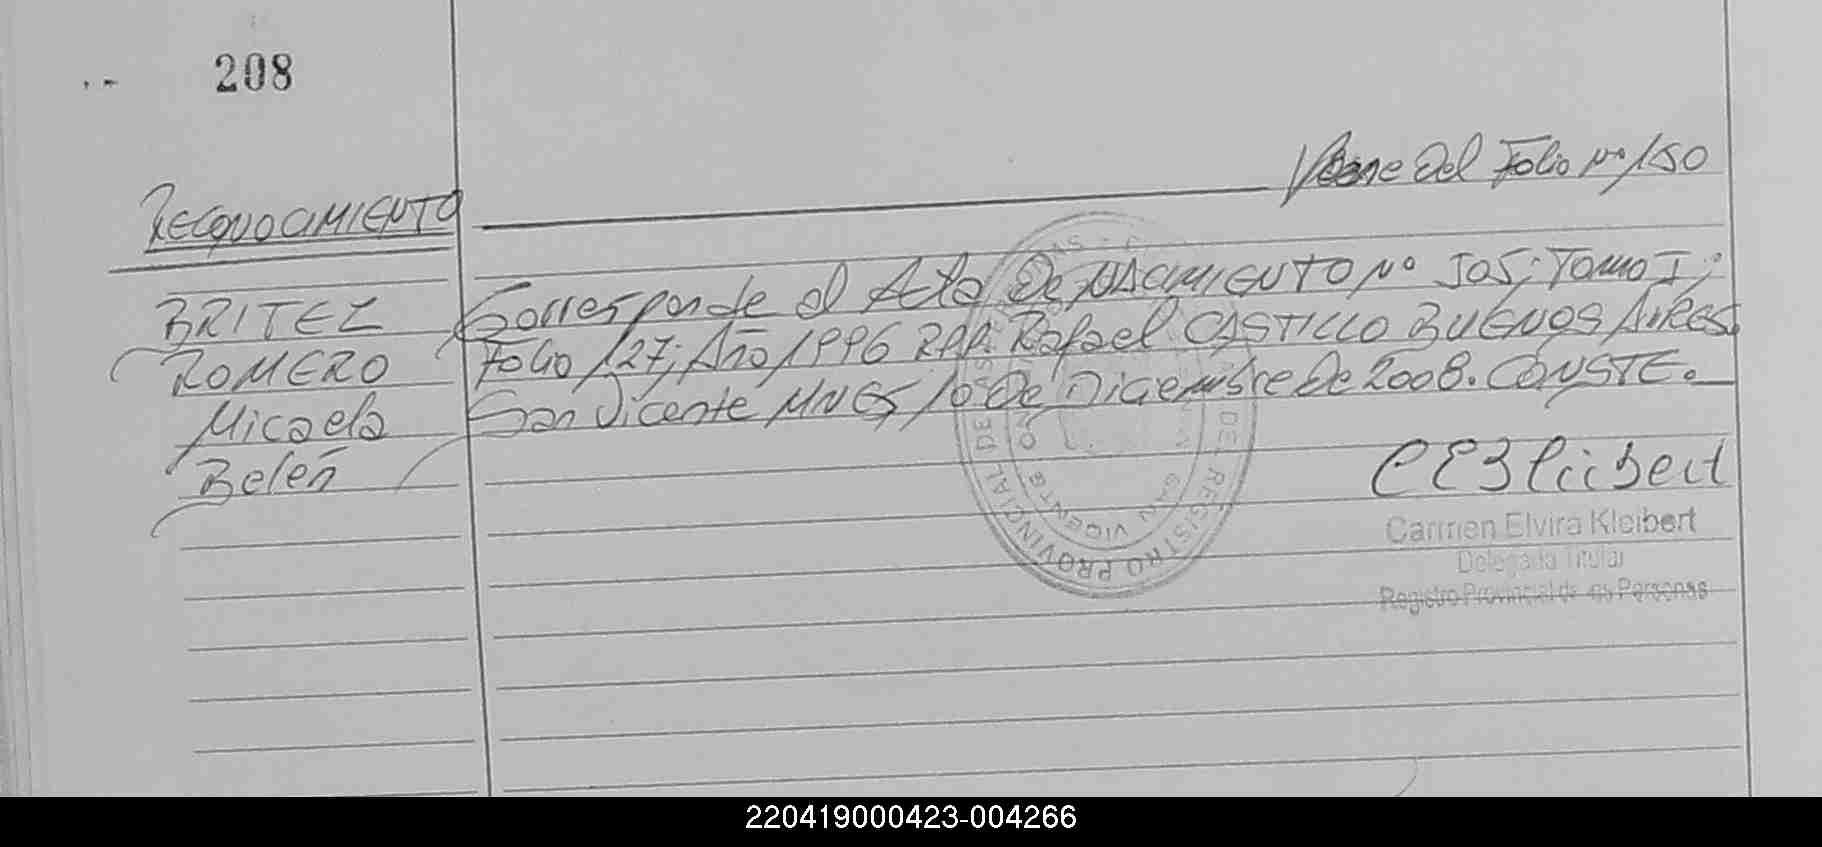 208
Viene Del Folio Nº 150
RECONOCIMIENTO
BRITEZ
ROMERO
Micaela
Belén
Corresponde al Acta De NACIMIENTO Nº 505; TOMO I;
Folio 127; Año 1996 RPP. Rafael CASTILLO BUENOS AIRES.
San Vicente MNES 10 De Diciembre De 2008. CONSTE.
DEL REGISTRO PROVINCIAL DE
SAN VICENTE
Carmen Elvira Kleibert
Delegada Titular
Registro Provincial de las Personas
220419000423-004266